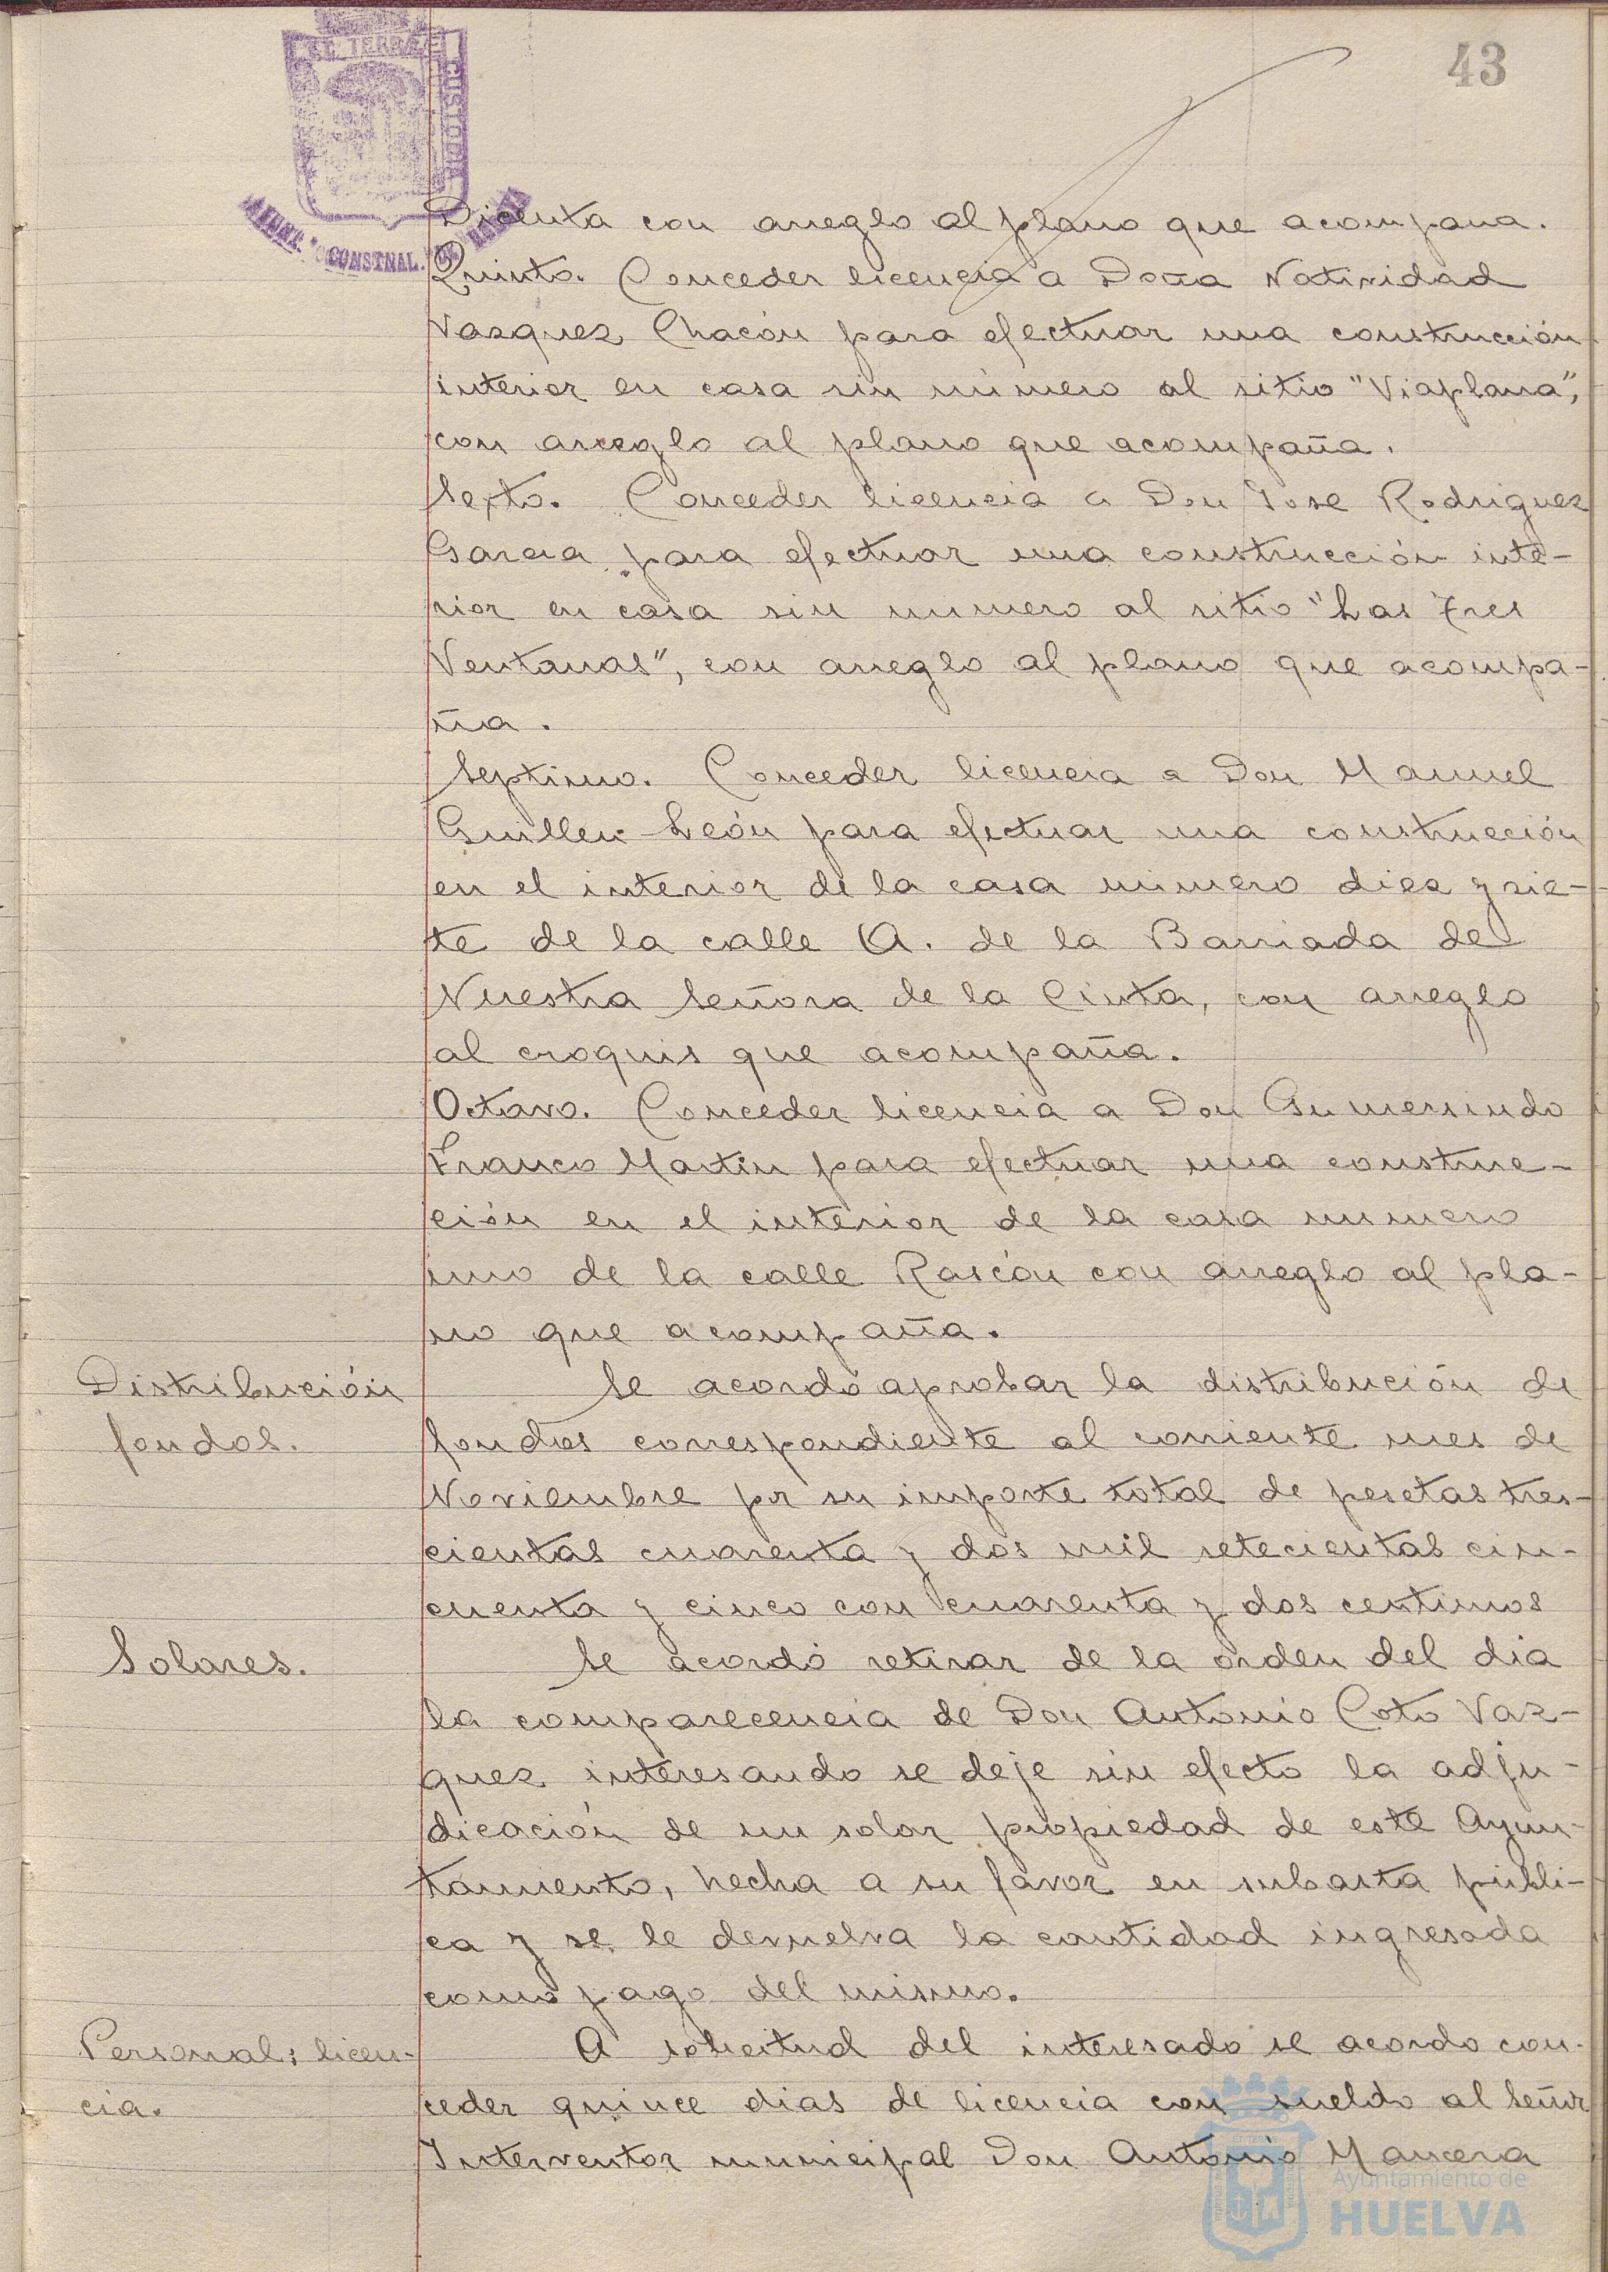 43
EL TERRÆ CUSTODIA
CONSTNAL.
Dicenta con arreglo al plano que acompana.
Quinto. Conceder licencia a Doña Natividad
Vazquez Chacón para efectuar una construcción
interior en casa sin número al sitio "Viaplana",
con arreglo al plano que acompaña.
Sexto. Conceder licencia a Don Jose Rodriguez
Garcia para efectuar una construcción inte-
rior en casa sin numero al sitio "Las Tres
Ventanas", con arreglo al plano que acompa-
ña.
Septimo. Conceder licencia a Don Manuel
Guillen León para efectuar una construcción
en el interior de la casa numero diez y sie-
te de la calle A. de la Barriada de
Nuestra Señora de la Cinta, con arreglo
al croquis que acompaña.
Octavo. Conceder licencia a Don Gumersindo
Franco Martin para efectuar una construc-
ción en el interior de la casa numero
uno de la calle Rascón con arreglo al pla-
no que acompaña.
Distribución
fondos.
Se acordó aprobar la distribución de
fondos correspondiente al corriente mes de
Noviembre por su importe total de pesetas tres-
cientas cuarenta y dos mil setecientas cin-
cuenta y cinco con cuarenta y dos centimos
Solares.
Se acordó retirar de la orden del dia
la comparecencia de Don Antonio Coto Vaz-
quez interesando se deje sin efecto la adju-
dicación de un solar propiedad de este Ayun-
tamiento, hecha a su favor en subasta públi-
ca y se le devuelva la cantidad ingresada
como pago del mismo.
Personal; licen-
cia.
A solicitud del interesado se acordo con-
ceder quince dias de licencia con sueldo al Señor
Interventor municipal Don Antonio Mancera
Ayuntamiento de
HUELVA